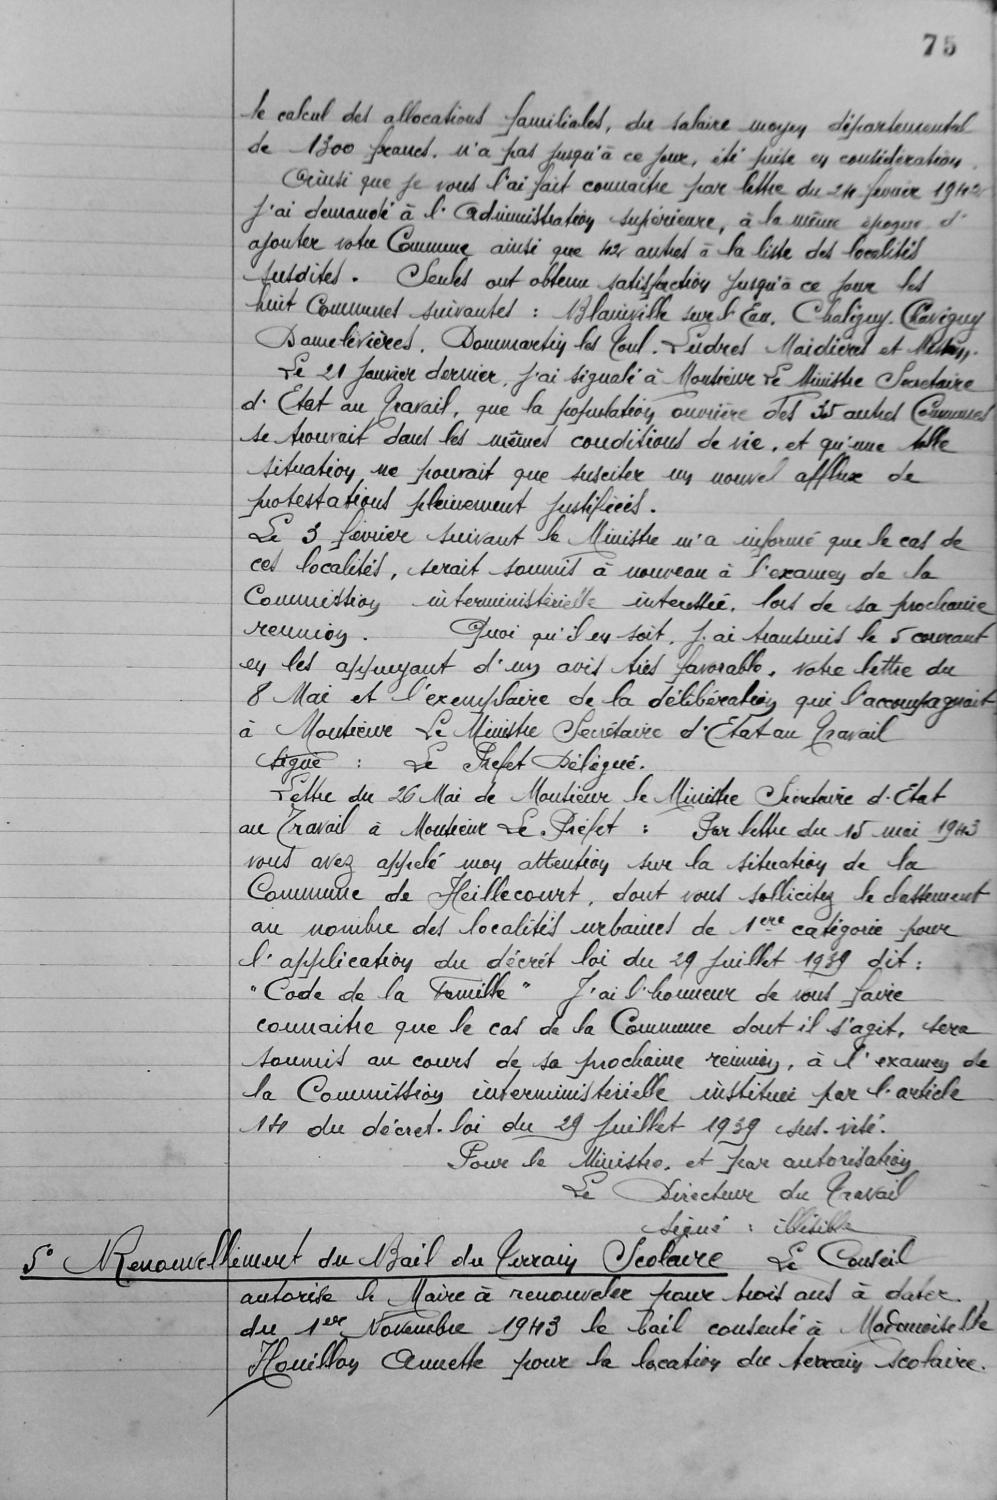 75
le calcul des allocations familiales, du salaire moyen départemental
de 1300 francs. n'a pas jusqu'à ce jour, été prise en considération.
Ainsi que je vous l'ai fait connaitre par lettre du 24 fevrier 1942
j'ai demandé à l'Administration supérieure, à la même époque d'
ajouter votre Commune ainsi que 42 autres à la liste des localités
susdites. Seules ont obtenu satisfaction jusqu'à ce jour les
huit Communes suivantes : Blainville sur l'Eau. Chaligny. Chavigny
Damelevières. Dommartin les Toul. Ludres Maidières et
Le 21 Janvier dernier, j'ai signalé à Monsieur Le Ministre Secretaire
d'Etat au Travail, que la population ouvrière des 35 autres Communes
se trouvait dans les mêmes conditions de vie, et qu'une telle
situation ne pouvait que susciter un nouvel afflux de
protestations pleinement justifiées.
Le 3 février suivant le Ministre m'a informé que le cas de
ces localités, serait soumis à nouveau à l'examen de la
Commission interministèrielle interessée, lors de sa prochaine
reunion. Quoi qu'il en soit, j'ai transmis le 5 courant
en les appuyant d'un avis très favorable, votre lettre du
8 Mai et l'exemplaire de la délibération qui l'accompagnait
à Monsieur Le Ministre Secrétaire d'Etat au Travail
Signé : Le Prefet Délégué.
Lettre du 26 Mai de Monsieur le Ministre Secrétaire d'Etat
au Travail à Monsieur Le Préfet : Par lettre du 15 mai 1943
vous avez appelé mon attention sur la situation de la
Commune de Heillecourt, dont vous sollicitez le classement
au nombre des localités urbaines de 1ere catégorie pour
l'application du décrét loi du 29 Juillet 1939 dit :
"Code de la Famille" J'ai l'honneur de vous faire
connaitre que le cas de la Commune dont il s'agit, sera
soumis au cours de sa prochaine réunion, à l'examen de
la Commission interministérielle instituée par l'article
14 du décret-loi du 29 Juillet 1939 sus-visé.
Pour le Ministre, et par autorisation
Le Directeur du Travail
Signé : illisible
5° Renouvellement du Bail du Terrain Scolaire Le Conseil
autorise le Maire à renouveler pour trois ans à dater
du 1er Novembre 1943 le bail consenti à Mademoiselle
Houillon Annette pour la location du terrain scolaire.